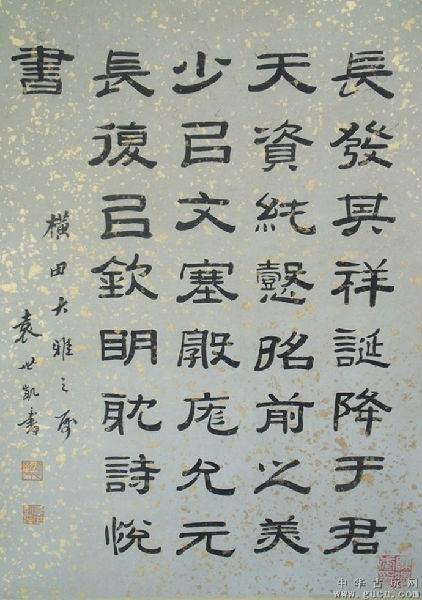 長發其祥誕降于君
天資純懿昭前之美
少㠯文塞敦庬允元
長復㠯欽明耽詩悅
書
橫田大雅之屬
袁世凱書
中华古玩网
www.gucn.com